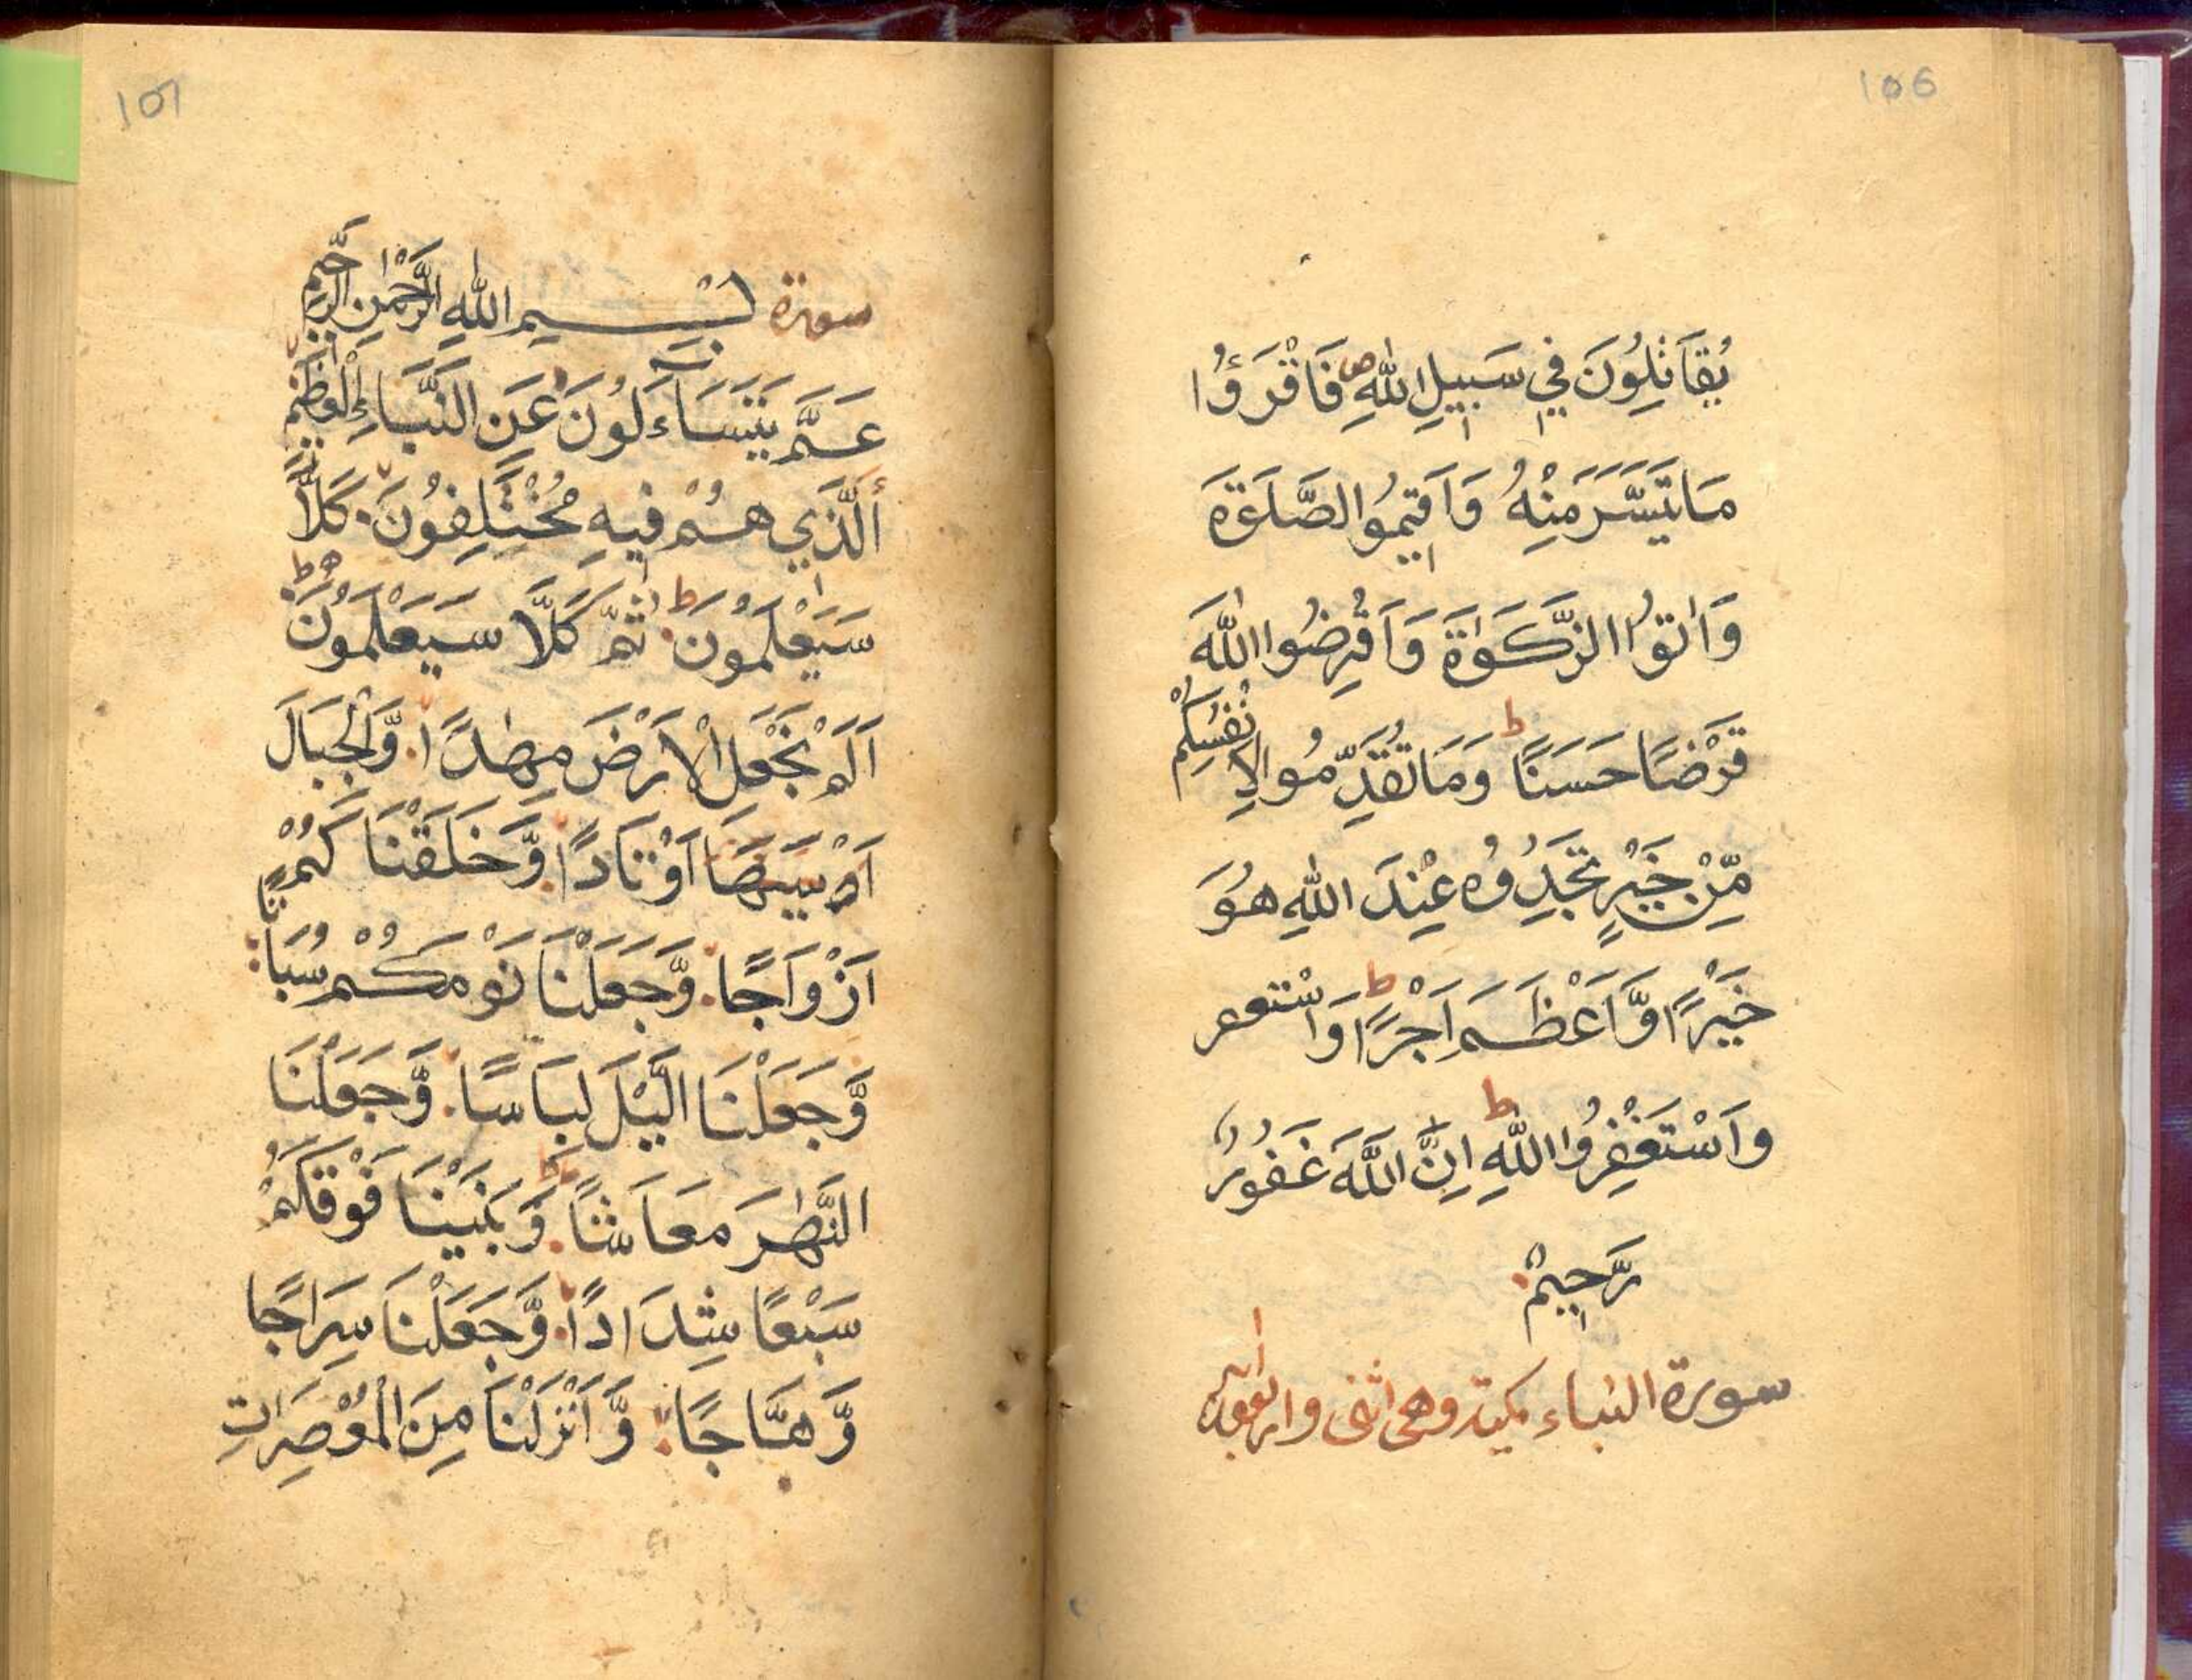 106
يُقَاتِلُونَ فِي سَبِيلِ اللّٰهِ ص فَاقْرَؤُا
مَا تَيَسَّرَ مِنْهُ وَاَقِيمُوا الصَّلَوٰةَ
وَاٰتُوا الزَّكَوٰةَ وَاَقْرِضُوا اللّٰهَ
قَرْضًا حَسَنًا ط وَمَا تُقَدِّمُوا لِاَنْفُسِكُمْ
مِّنْ خَيْرٍ تَجِدُوْهُ عِنْدَ اللّٰهِ هُوَ
خَيْرًا وَّاَعْظَمَ اَجْرًا ط وَاسْتغفر
وَاَسْتَغْفِرُوا اللّٰهِ ط اِنَّ اللّٰهَ غَفُوْرٌ
رَّحِيمٌ
سورة النباء مكية وهي اثنى واربعون اية
107
سورة بِسْمِ اللّٰهِ الرَّحْمٰنِ الرَّحِيْمِ
عَمَّ يَتَسَآءَلُونَ عَنِ النَّبَاءِ الْعَظِيْمِ
الَّذِي هُمْ فِيهِ مُخْتَلِفُونَ كَلَّا
سَيَعْلَمُونَ ط ثُمَّ كَلَّا سَيَعْلَمُونَ ط
اَلَمْ نَجْعَلِ الْاَرْضَ مِهٰدًا وَّالْجِبَالَ
اَوْتَادًا وَّخَلَقْنَاكُمْ
اَزْوَاجًا وَّجَعَلْنَا نَوْمَكُمْ سُبَاتًا
وَّجَعَلْنَا الَّيْلَ لِبَاسًا وَّجَعَلْنَا
النَّهٰرَ مَعَاشًا وَّبَنَيْنَا فَوْقَكُمْ
سَبْعًا شِدَادًا وَّجَعَلْنَا سِرَاجًا
وَّهَّاجًا وَّاَنْزَلْنَا مِنَ الْمُعْصِرَاتِ